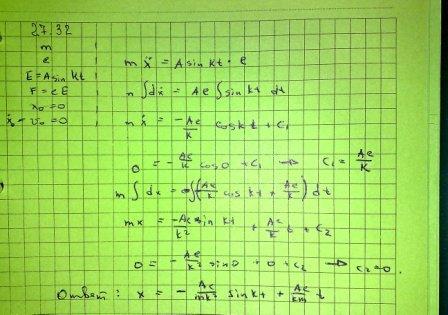 27.32
m
e
E = A sin kt
F = eE
x₀ = 0
ẋ₀ = v₀ = 0
m ẍ = A sin kt · e
m ∫ dẋ = Ae ∫ sin kt dt
m ẋ = -Ae/k cos kt + C₁
0 = - Ae/k cos 0 + C₁ → C₁ = Ae/k
m ∫ dx = ∫ (-Ae/k cos kt + Ae/k) dt
mx = -Ae sin kt / k² + Ae/k t + C₂
0 = - Ae/k² sin 0 + 0 + C₂ → C₂ = 0.
Ответ: x = - Ae/mk² sin kt + Ae/km t